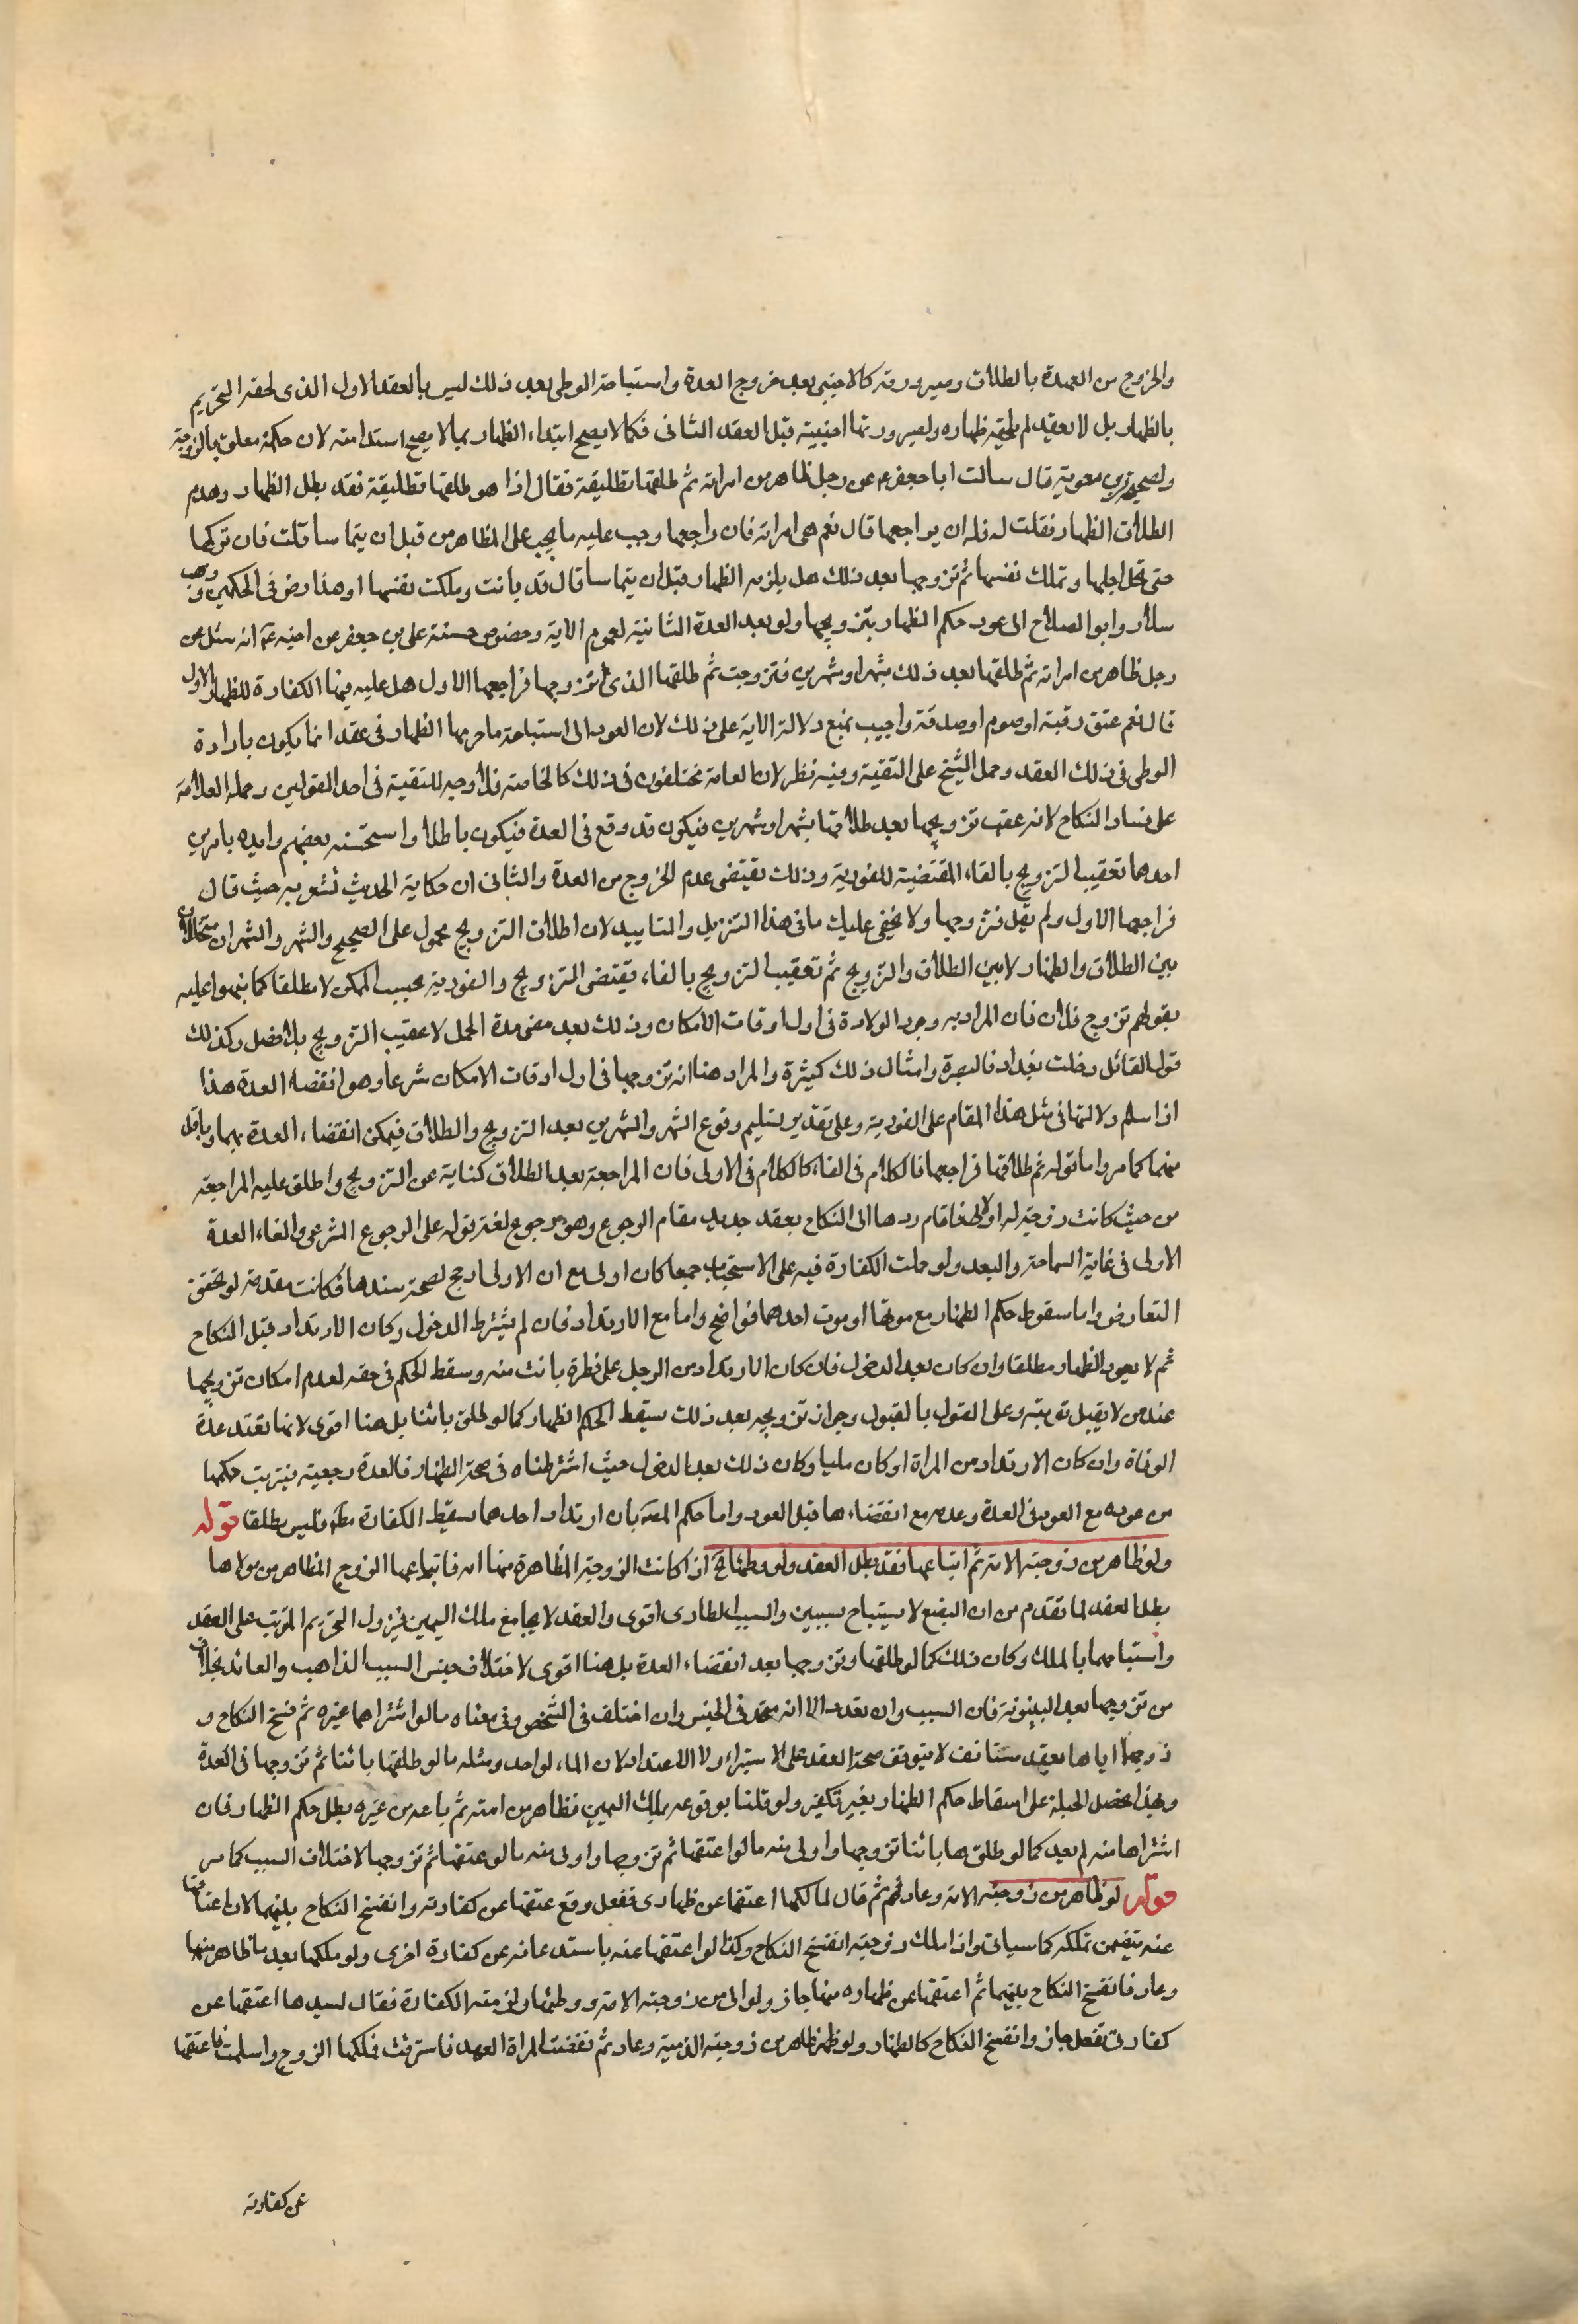 والخروج من العهدة بالطلاق وصيرورته كالاجنبي بعد خروج العدة واستباحة الوطى بعد ذلك ليس بالعقد الاول الذى لحقه التحريم
بالظهار بل لا بعقد لم يلحقه ظهاره ولصيرورتها اجنبية قبل العقد الثانى فكما لا يصح ابتداء الظهار بها لا يصح استدامته لان حكمه معلق بالزوجية
ولصحيحة بريد بن معوية قال سالت ابا جعفر ع عن رجل ظاهر من امراته ثم طلقها تطليقة فقال اذا هو طلقها تطليقة فقد بطل الظهار وهدم
الطلاق الظهار فقلت له فله ان يراجعها قال نعم هى امراته فان راجعها وجب عليه ما يجب على المظاهر من قبل ان يتماسا قلت فان تركها
حتى تحل اجلها وتملك نفسها ثم تزوجها بعد ذلك هل يلزمه الظهار قبل ان يتماسا قال قد بانت وملكت نفسها وهذا نص فى الحكمين وذهب
سلار وابو الصلاح الى عود حكم الظهار بتزويجها ولو بعد العدة الثانية لعموم الاية وخصوص حسنة على بن جعفر عن اخيه ع انه سئل عن
رجل ظاهر من امراته ثم طلقها بعد ذلك بشهر او شهرين فتزوجت ثم طلقها الذى تزوجها فراجعها الاول هل عليه فيها الكفارة للظهار الاول
قال نعم عتق رقبة او صوم او صدقة واجيب بمنع دلالة الاية على ذلك لان العود الى استباحة ما حرمها الظهار فى عقد انما يكون بارادة
الوطى فى ذلك العقد وحمل الشيخ على التقية وفيه نظر لان العامة مختلفون فى ذلك كالخاصة فلا وجه للتقية فى احد القولين وحمله العلامة
على فساد النكاح لانه عقب تزويجها بعد طلاقها بشهر او شهرين فيكون قد وقع فى العدة فيكون باطلا واستحسنه بعضهم وايده بامرين
احدهما تعقيب التزويج بالفاء المقتضية للفورية وذلك يقتضى عدم الخروج من العدة والثانى ان حكاية الحديث تشعر به حيث قال
فراجعها الاول ولم يقل فتزوجها ولا يخفى عليك ما فى هذا التنزيل والتاييد لان اطلاق التزويج محمول على الصحيح والشهر والشهران متخللان
بين الطلاق والظهار لا بين الطلاق والتزويج ثم تعقيب التزويج بالفاء يقتضى التزويج والفورية بحسب الممكن لا مطلقا كما نبهوا عليه
بقولهم تزوج فلان فان المراد به وجود الولادة فى اول اوقات الامكان وذلك بعد مضى مدة الحمل لا عقيب التزويج بلا فصل وكذلك
قول القائل دخلت بغداد فالبصرة وامثال ذلك كثيرة والمراد هنا انه تزوجها فى اول اوقات الامكان شرعا وهو انقضاء العدة هذا
اذا سلم دلالتها فى مثل هذا المقام على الفورية وعلى تقدير تسليم وقوع الشهر والشهرين بعد التزويج والطلاق فيمكن انقضاء العدة بهما وباقل
منهما كما مر واما قوله ثم طلاقها فراجعها فالكلام فى الفاء كالكلام فى الاولى فان المراجعة بعد الطلاق كناية عن التزويج واطلق عليه المراجعة
من حيث كانت زوجته له اولا فاقام ردها الى النكاح بعقد جديد مقام الرجوع وهو رجوع لغة فقوله على الرجوع الشرعى والغاء العدة
الاولى فى غاية السماحة والبعد ولو حملت الكفارة فيه على الاستحباب جمعا كان اولى مع ان الاولى ارجح لصحة سندها فكانت مقدمة لو تحقق
التعارض واما سقوط حكم الظهار مع موتها او موت احدهما فواضح واما مع الارتداد فان لم يشترط الدخول وكان الارتداد قبل النكاح
ثم لا يعود الظهار مطلقا وان كان بعد الدخول فان كان الارتداد من الرجل على فطرة بانت منه وسقط الحكم فى حقه لعدم امكان تزويجها
عند من لا يقبل توبته وعلى القول بالقبول وجواز تزويجه بعد ذلك يسقط الحكم الظهار كما لو طلق بائنا بل هنا اقوى لانها تعتد عدة
الوفاة وان كان الارتداد من المراة او كان مليا وكان ذلك بعد الدخول حيث اشترطناه فى صحة الظهار فالعدة رجعية فيترتب حكمها
من عوده مع العود فى العدة وعدمه مع انقضاءها قبل العود واما حكم المص بان ارتداد احدهما يسقط الكفارة مط فليس مطلقا قوله
ولو ظاهر من زوجته الامة ثم ابتاعها فقد بطل العقد ولو وطئها الخ اذا كانت الزوجة المظاهرة منها امة فابتاعها الزوج المظاهر من مولاها
بطل العقد لما تقدم من ان البضع لا يستباح بسببين والسبب الطارى اقوى والعقد لا يجامع ملك اليمين فيزول التحريم المترتب على العقد
واستباحها بالملك وكان ذلك كما لو طلقها وتزوجها بعد انقضاء العدة بل هنا اقوى لاختلاف جنس السبب الذاهب والعائد بخلاف
من تزوجها بعد البينونة فان السبب وان تعدد الا انه متحد فى الجنس وان اختلف فى الشخص وفى معناه ما لو اشتراها غيره ثم فسخ النكاح و
زوجها اياها بعقد مستانف لا يتوقف صحة العقد على الاستبراء ولا الاعتداد لان الماء لواحد ومثله ما لو طلقها بائنا ثم تزوجها فى العدة
وبهذا تحصل الحيلة على اسقاط حكم الظهار بغير تكفير ولو قلنا بوقوعه بملك اليمين فظاهر من امته ثم باعه من غيره بطل حكم الظهار فان
اشتراها منه لم يعد كما لو طلقها بائنا تزوجها واولى منه ما لو اعتقها ثم تزوجها واولى منه ما لو عتقها ثم تزوجها لاختلاف السبب كما مر
قوله لو ظاهر من زوجته الامة وعاد ثم قال لمالكها اعتقها عن ظهارى ففعل وقع عتقها عن كفارته وانفسخ النكاح بينهما لان اعتاقها
عنه يتضمن تملكه كما سياتى واذا ملك زوجته انفسخ النكاح وكذا لو اعتقها عنه باستدعائه عن كفارة اخرى ولو ملكها بعد ما ظاهر منها
وعاد فانفسخ النكاح بينهما ثم اعتقها عن ظهاره منها جاز ولو الى من زوجته الامة ووطئها ولزمته الكفارة فقال لسيدها اعتقها عن
كفارتى ففعل جاز وانفسخ النكاح كالظهار ولو ظاهر من زوجته الذمية وعاد ثم نقضت المراة العهد فاسترقت فملكها الزوج واسلمت فاعتقها
عن كفارته